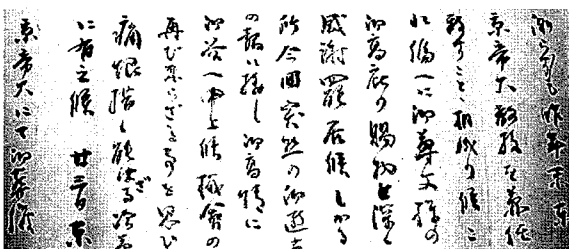 図らずも昨年末東
京帝大教授を兼任
致すことゝ相成り候こ
とは偏へに御尊父様の
御高庇の賜物と深く
感謝罷在候 しかる
所今回突然の御逝去
の報に接し御高情に
御答へ申上候機会の
再び来らざることを思ひ
痛恨措く能はざる次第
に有之候 廿三日東
京帝大にて御葬儀